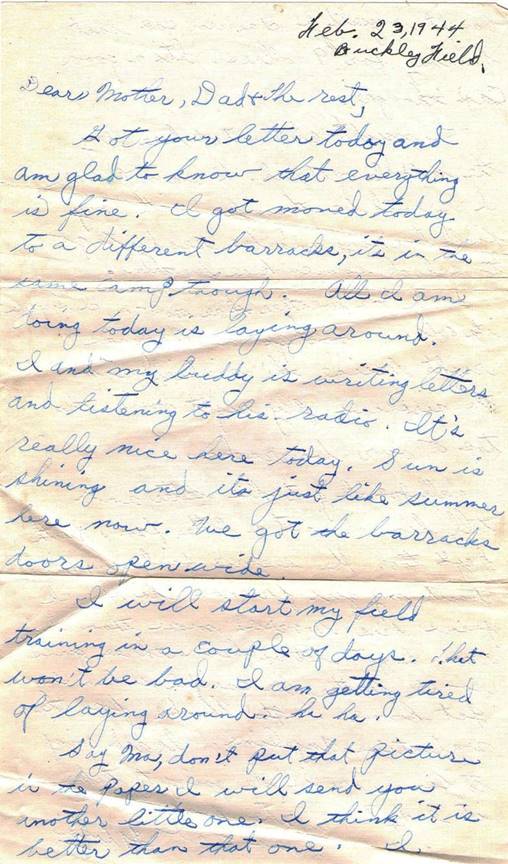 Feb. 23, 1944
Buckley Field,
Dear Mother, Dad & the rest,
Got your letter today and
am glad to know that everything
is fine. I got moved today
to a different barracks, it's in the
same camp though. All I am
doing today is laying around.
I and my buddy is writing letters
and listening to his radio. It's
really nice here today. Sun is
shining and its just like summer
here now. We got the barracks
doors open wide.
I will start my field
training in a couple of days. That
won't be bad. I am getting tired
of laying around. ha ha.
Say Ma, don't put that picture
in the paper I will send you
another little one. I think it is
better than that one. I